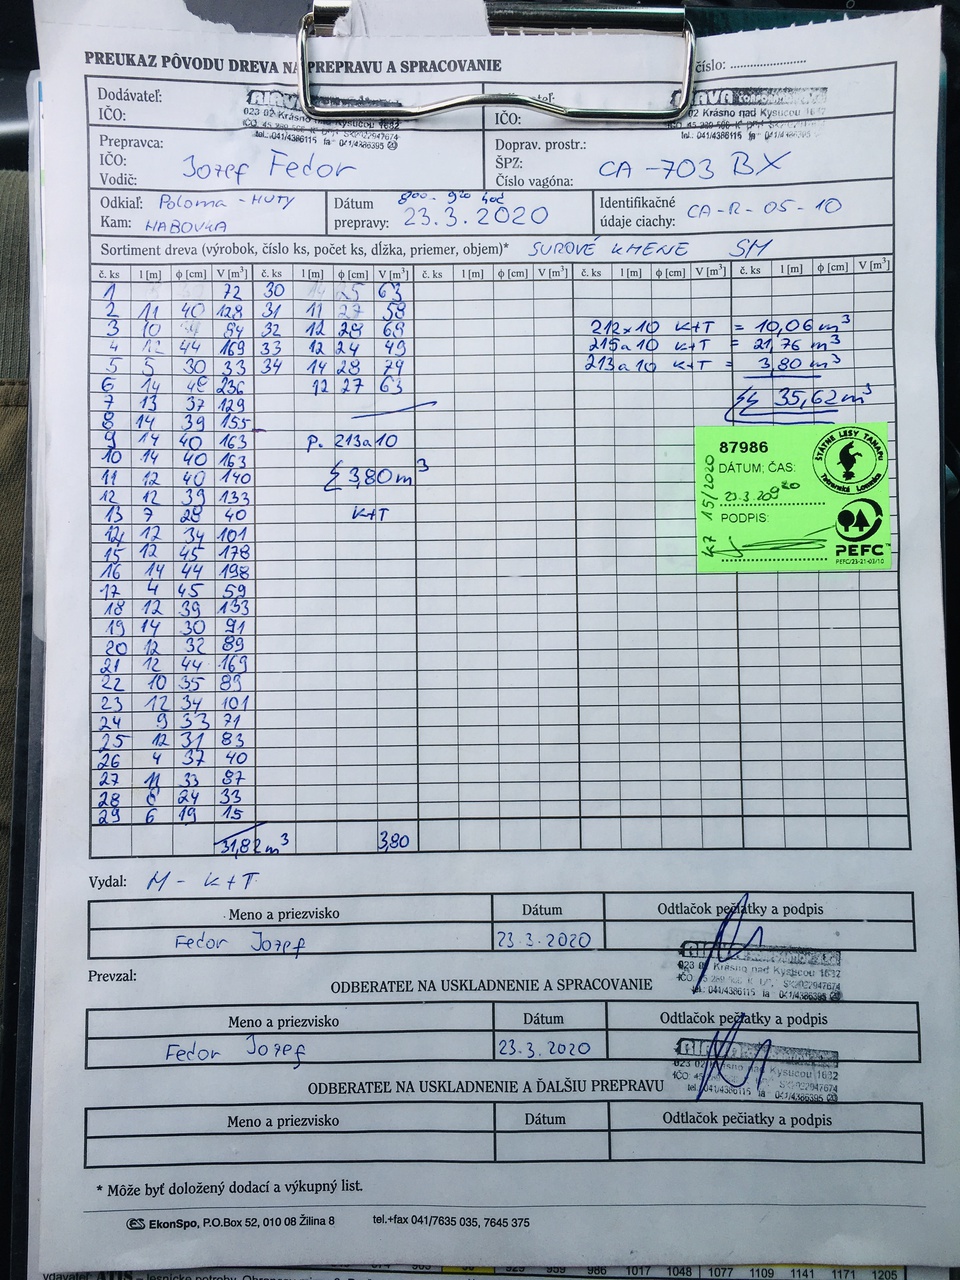 PREUKAZ PÔVODU DREVA NA PREPRAVU A SPRACOVANIE
číslo:
Dodávateľ:
IČO:
RIAVA
023 02 Krásno nad Kysucou 1632
tel.:041/4386115 fa 041/4386395
IČO:
RIAVA CORPOR
02 Krásno nad Kysucou 1632
tel.:041/4386115 fa 041/4386395
Prepravca:
IČO:
Vodič:
Jozef Fedor
Doprav. prostr.:
ŠPZ:
Číslo vagóna:
CA-703 BX
Odkiaľ: Poloma - HUTY
Kam: HABOVKA
Dátum
prepravy:
8⁰⁰ - 9²⁰ hod
23.3.2020
Identifikačné
údaje ciachy:
CA-R-05-10
Sortiment dreva (výrobok, číslo ks, počet ks, dĺžka, priemer, objem)* SUROVÉ KMENE SM
č. ks l [m] ϕ [cm] V [m³] č. ks l [m] ϕ [cm] V [m³] č. ks l [m] ϕ [cm] V [m³] č. ks l [m] ϕ [cm] V [m³] č. ks l [m] ϕ [cm] V [m³]
1 72 30 14 25 63
2 11 40 128 31 11 27 58
3 10 94 32 12 28 69 212x10 K+T = 10,06 m³
4 12 44 169 33 12 24 49 215a10 K+T = 21,76 m³
5 5 30 33 34 14 28 79 213a10 K+T = 3,80 m³
6 14 236 12 27 63
7 13 37 129 35,62 m³
8 14 39 155
9 14 40 163 p. 213a10
10 14 40 163
11 12 40 140 Σ 3,80 m³
12 12 39 133
13 7 28 40 K+T
14 12 34 101
15 12 45 178
16 14 44 198
17 4 45 59
18 12 39 133
19 14 30 91
20 12 32 89
21 12 44 169
22 10 35 89
23 12 34 101
24 9 33 71
25 12 31 83
26 4 37 40
27 11 33 87
28 24 33
29 6 19 15
31,82 m³ 3,80
87986
DÁTUM; ČAS:
23.3. 9²⁰
PODPIS:
15/2020
ŠTÁTNE LESY TANAPu
Tatranská Lomnica
PEFC™
PEFC/23-21-03/10
Vydal: M - K+T
Meno a priezvisko Dátum Odtlačok pečiatky a podpis
Fedor Jozef 23.3.2020
RIAVA
023 02 Krásno nad Kysucou 1632
tel.: 041/4386115 fa 041/4386395
Prevzal:
ODBERATEĽ NA USKLADNENIE A SPRACOVANIE
Meno a priezvisko Dátum Odtlačok pečiatky a podpis
Fedor Jozef 23.3.2020
RIAVA
023 02 Krásno nad Kysucou 1632
tel.: 041/4386115 fa 041/4386395
ODBERATEĽ NA USKLADNENIE A ĎALŠIU PREPRAVU
Meno a priezvisko Dátum Odtlačok pečiatky a podpis
* Môže byť doložený dodací a výkupný list.
EkonSpo, P.O.Box 52, 010 08 Žilina 8 tel.+fax 041/7635 035, 7645 375
986 1017 1048 1077 1109 1141 1171 1205